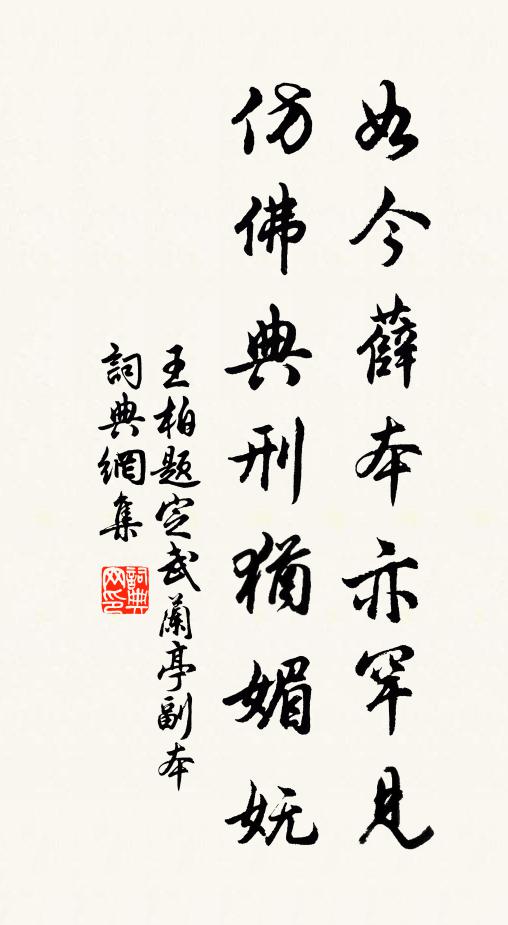 如今薛本亦罕見
仿佛典刑猶媚妩
王柏题定武蘭亭副本
詞典網集
詞典网印